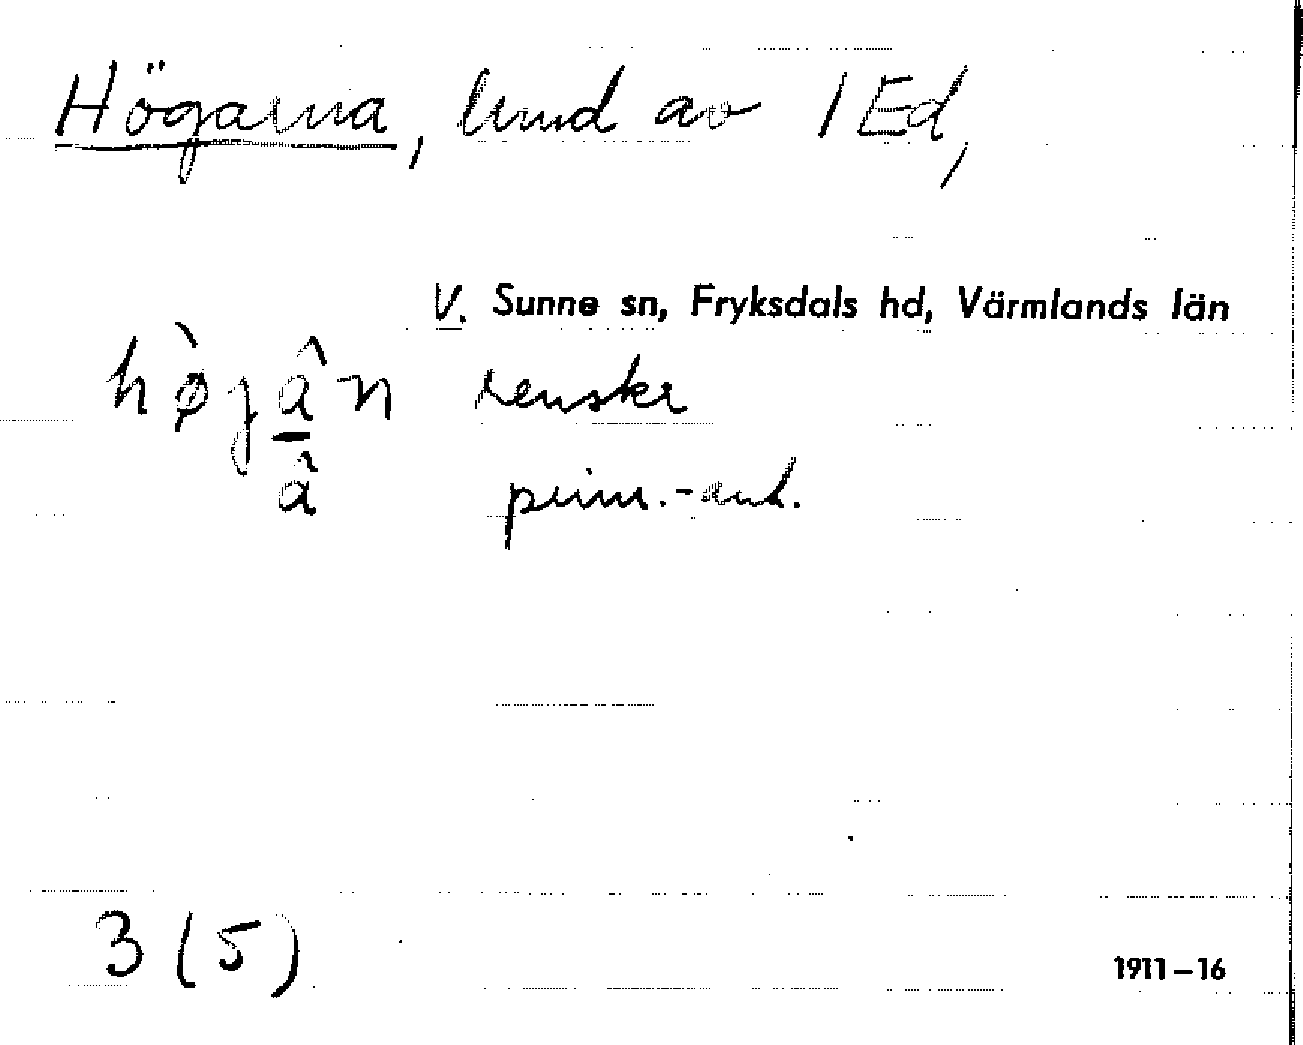 Högarna, lund av 1 Ed,
V. Sunne sn, Fryksdals hd, Värmlands län
hø̀jâ̱n renskr
â prim.-ant.
3 (5)
1911–16